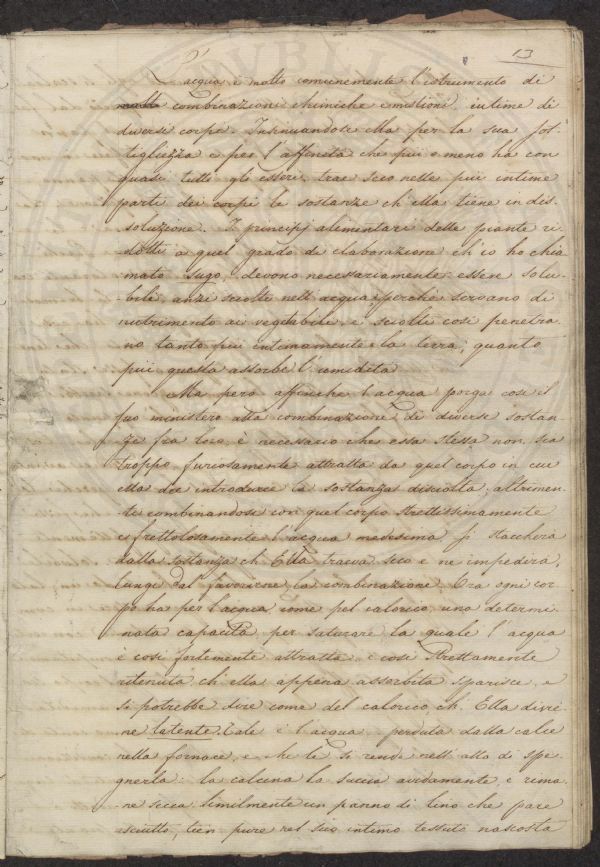 13
L'acqua, è molto comunemente l'istrumento di
molte combinazioni chimiche e mistioni intime di
diversi corpi. Insinuandosi ella per la sua sot-
tigliezza e per l'affinità che più o meno ha con
quasi tutti gli esseri, trae seco nelle più intime
parti dei corpi le sostanze ch'ella tiene in dis-
soluzione. I principj alimentari delle piante ri-
dotti a quel grado di elaborazione ch'io ho chia
mato sugo, devono necessariamente essere solu-
bili, anzi sciolti nell'acqua perché servano di
nutrimento ai vegetabili, e sciolti così penetra
no tanto più intimamente la terra, quanto
più questa assorbe l'umidità.
Ma però affinché l'acqua porga così il
suo ministero alla combinazione di diverse sostan
ze fra loro, è necessario che essa stessa non sia
troppo furiosamente attratta da quel corpo in cui
ella dee introdurre la sostanza disciolta. altrimen-
ti combinandosi con quel corpo strettissimamente
e frettolosamente l'acqua medesima si staccherà
dalla sostanza ch'Ella traeva seco e ne impedirà,
lungi dal favorirne la combinazione. Ora ogni cor
po ha per l'acqua come pel calorico, una determi
nata capacità per saturare la quale l'acqua
è così fortemente attratta, e così strettamente
ritenuta ch'ella appena assorbita sparisce, e
si potrebbe dire come del calorico, ch'Ella divie
ne latente. Tale è l'acqua, perduta dalla calce
nella fornace, e che le si rende nell'atto di spe
gnerla: la calcina la succia avidamente e rima
ne secca. Similmente un panno di lino che pare
asciutto, tien pure nel suo intimo tessuto nascosta